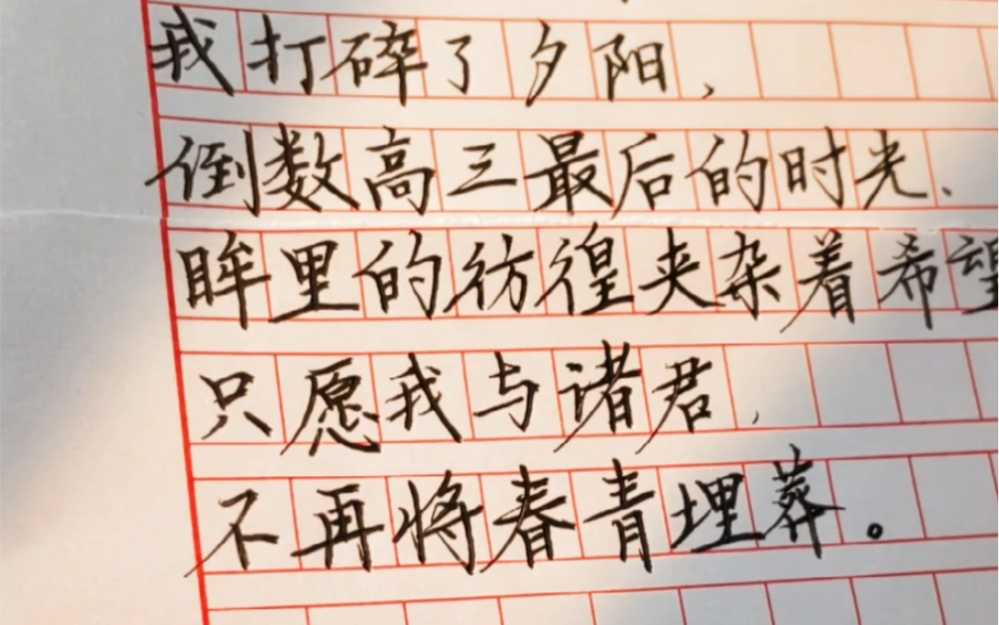 我打碎了夕阳，
倒数高三最后的时光、
眸里的彷徨夹杂着希望
只愿我与诸君，
不再将春青埋葬。